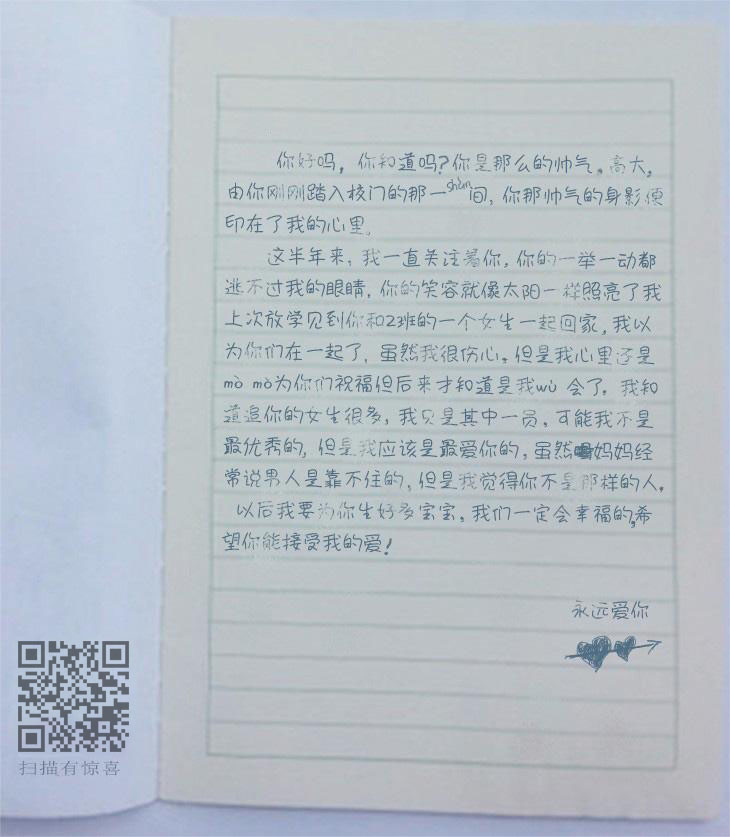 你好吗，你知道吗？你是那么的帅气。高大。
由你刚刚踏入校门的那一shùn间，你那帅气的身影便
印在了我的心里。
这半年来，我一直关注着你，你的一举一动都
逃不过我的眼睛，你的笑容就像太阳一样照亮了我
上次放学见到你和2班的一个女生一起回家，我以
为你们在一起了，虽然我很伤心。但是我心里还是
mò mò为你们祝福但后来才知道是我wù 会了。我知
道追你的女生很多，我只是其中一员，可能我不是
最优秀的，但是我应该是最爱你的，虽然妈妈经
常说男人是靠不住的，但是我觉得你不是那样的人。
以后我要为你生好多宝宝，我们一定会幸福的，希
望你能接受我的爱！
永远爱你
扫描有惊喜